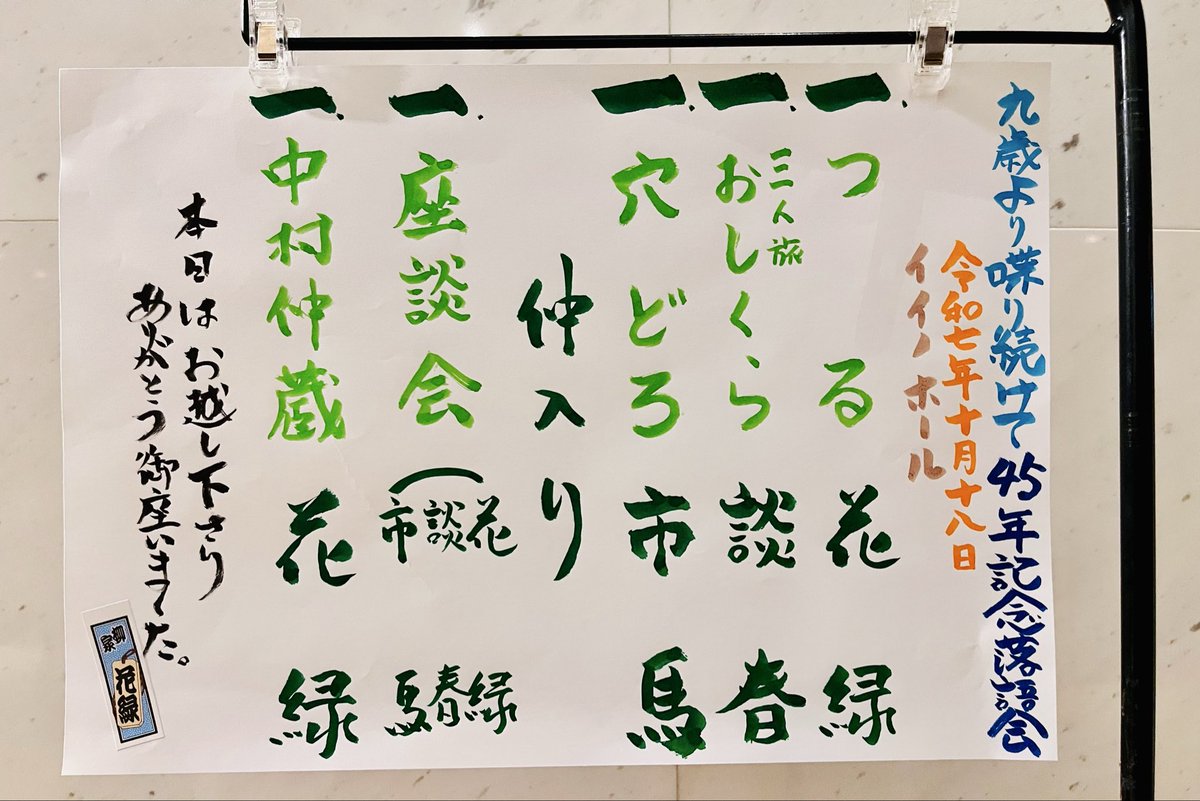 九歳より喋り続けて45年記念落語会
令和七年十月十八日
イイノホール
一、つる 花緑
一、三人旅 おしくら 談春
一、穴どろ 市馬
仲入り
一、座談会(花緑 談春 市馬
一、中村仲蔵 花緑
本日はお越し下さり
ありがとう御座いました。
柳家
花緑